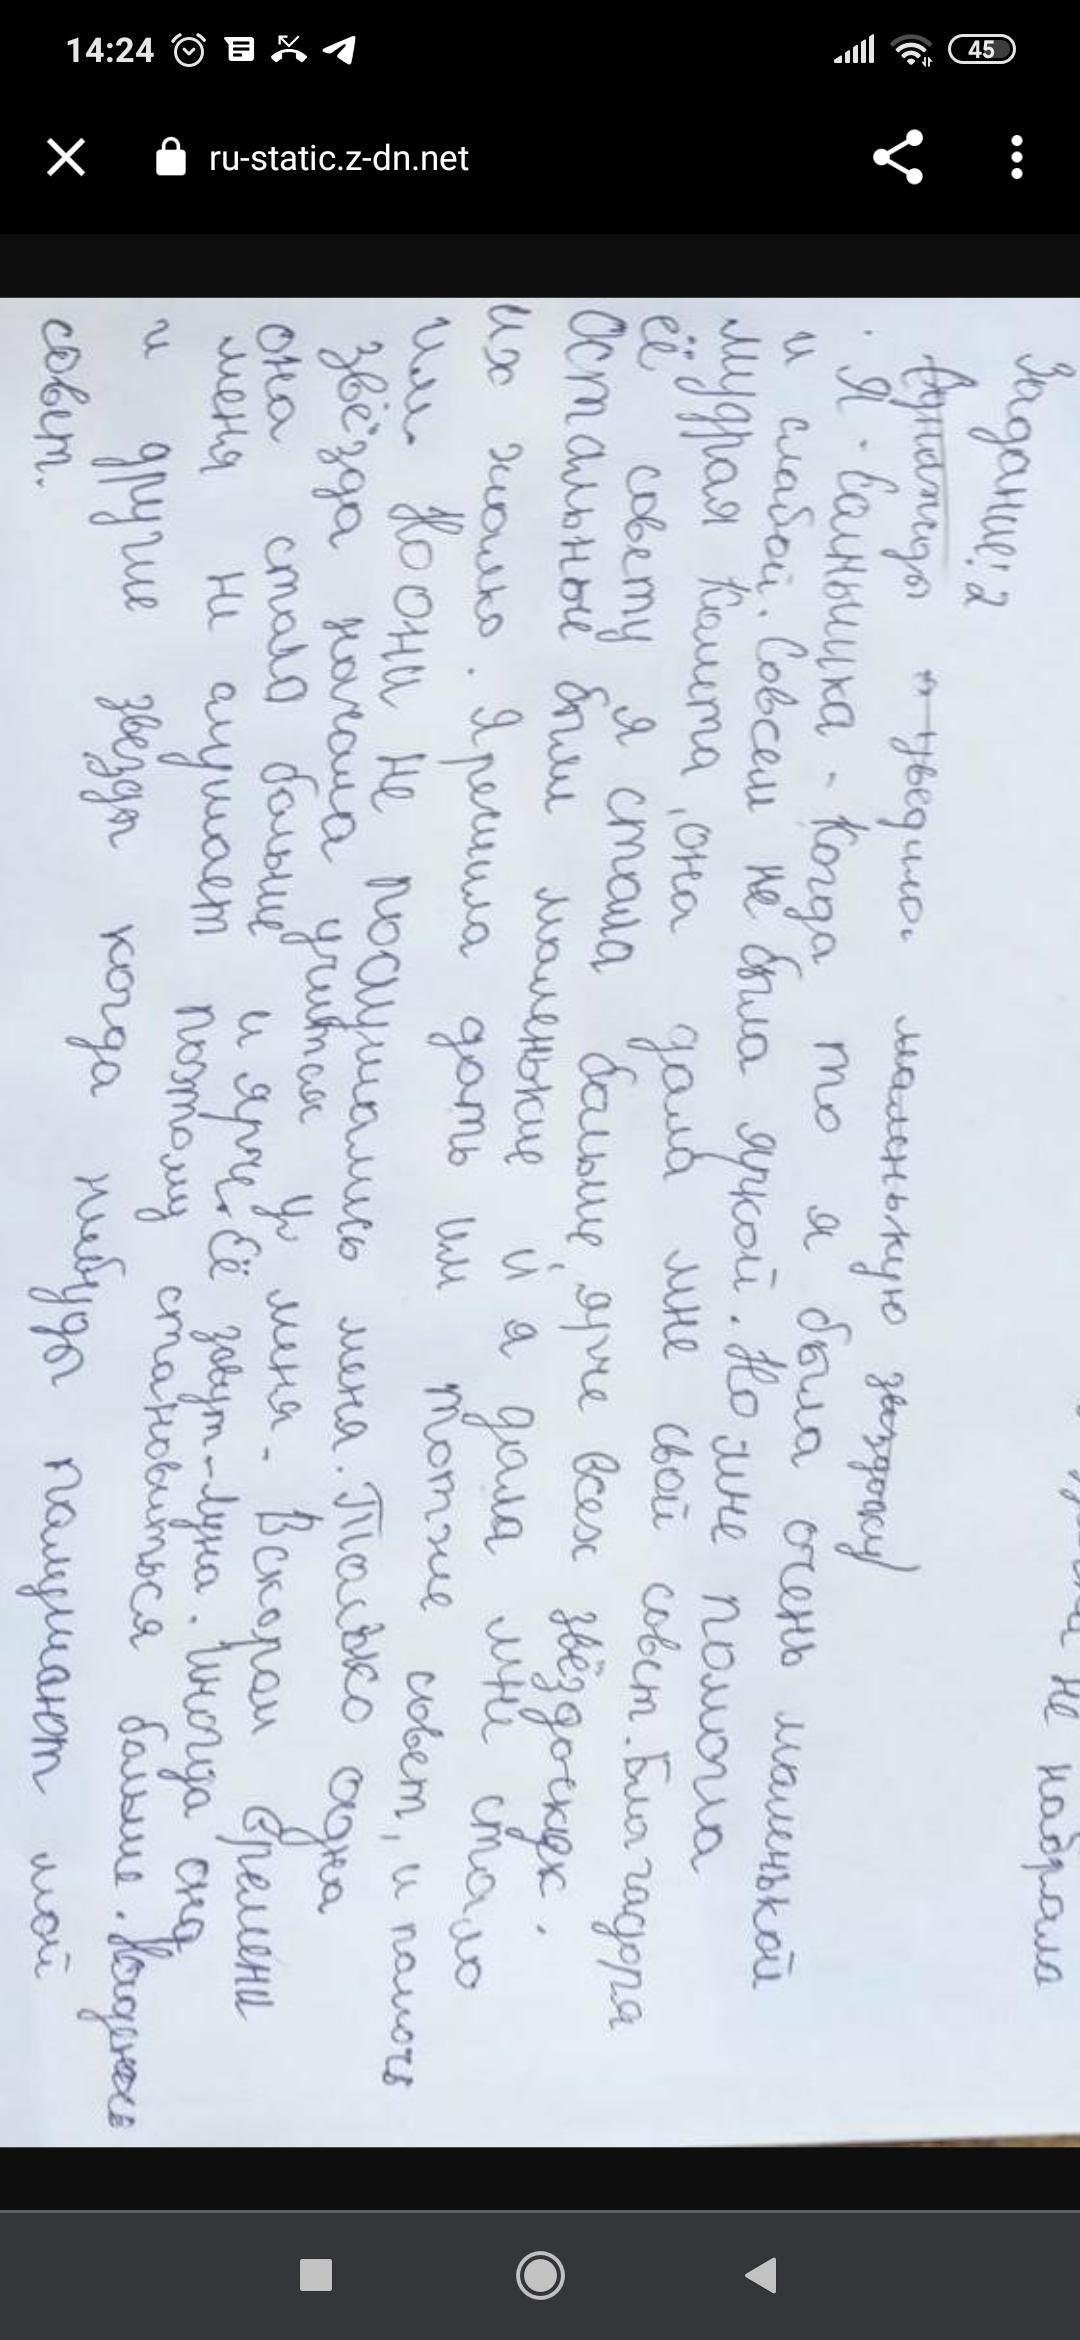 14:24
45
ru-static.z-dn.net
не набрала
Задание! 2
Однажды я увидила маленькую звездочку
. Я - Солнышка - Когда то я была очень маленькой
и слабой. Совсем не была яркой. Но мне помогла
мудрая Комета, она дала мне свой совет. Благадоря
её совету я стала больше, ярче всех звёздочек.
Остальные были маленькие и я дала мне стало
их жалко. Я решила дать им тотже совет, и помочь
им. Но они не послушались меня. Только одна
звёзда начала учится у меня - Вскором времени
она стала больше и ярче. Её зовут - Луна. Иногда она
меня не слушает поэтому становиться больше. Надеюсь
и другие звезды когда нибуды послушают мой
совет.